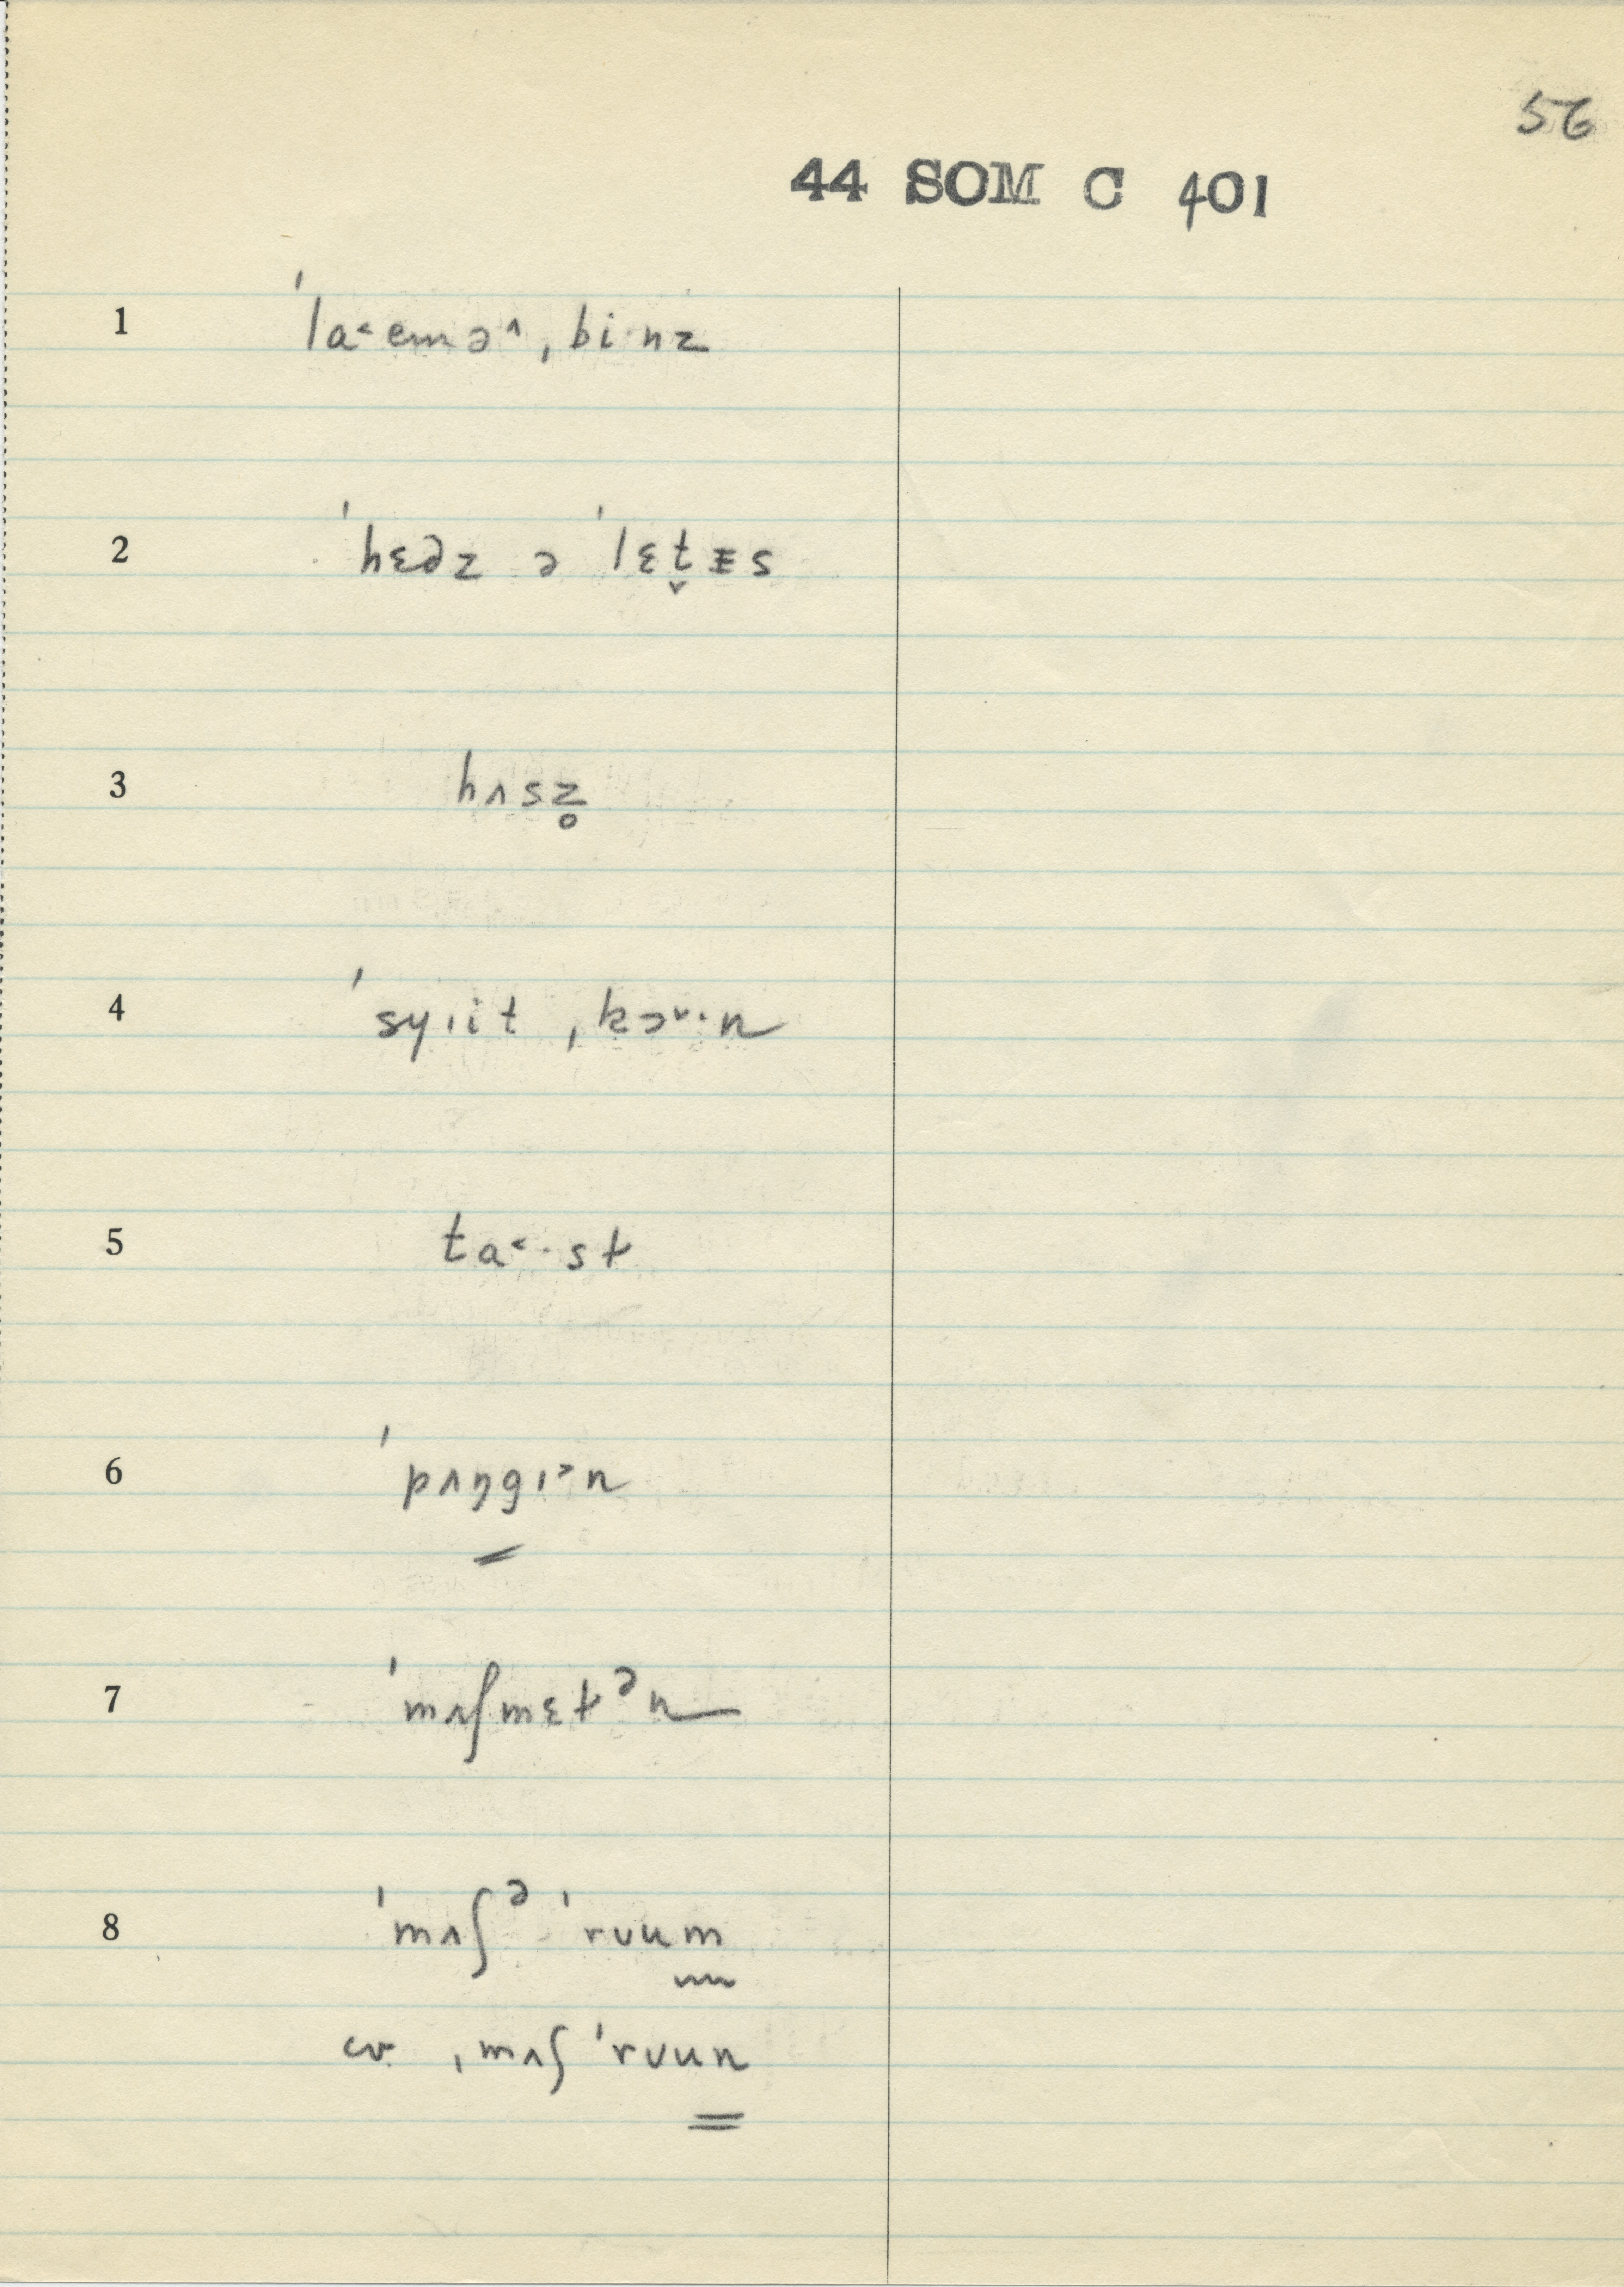 56
44 SOM C 401
1 ˈla˂emə˄ˌbi·nz
2 ˈhɛdz ə ˈlɛt̬ᵻs
3 hʌsz̥
4 ˈsyıit ˌkɔ˅·n
5 ta˂·st
6 ˈpʌŋgı˃n
7 ˈmʌʃmɛtᵊn
8 ˈmʌʃᵊ ˈrʊum
cv. ˌmʌʃ ˈrʊun